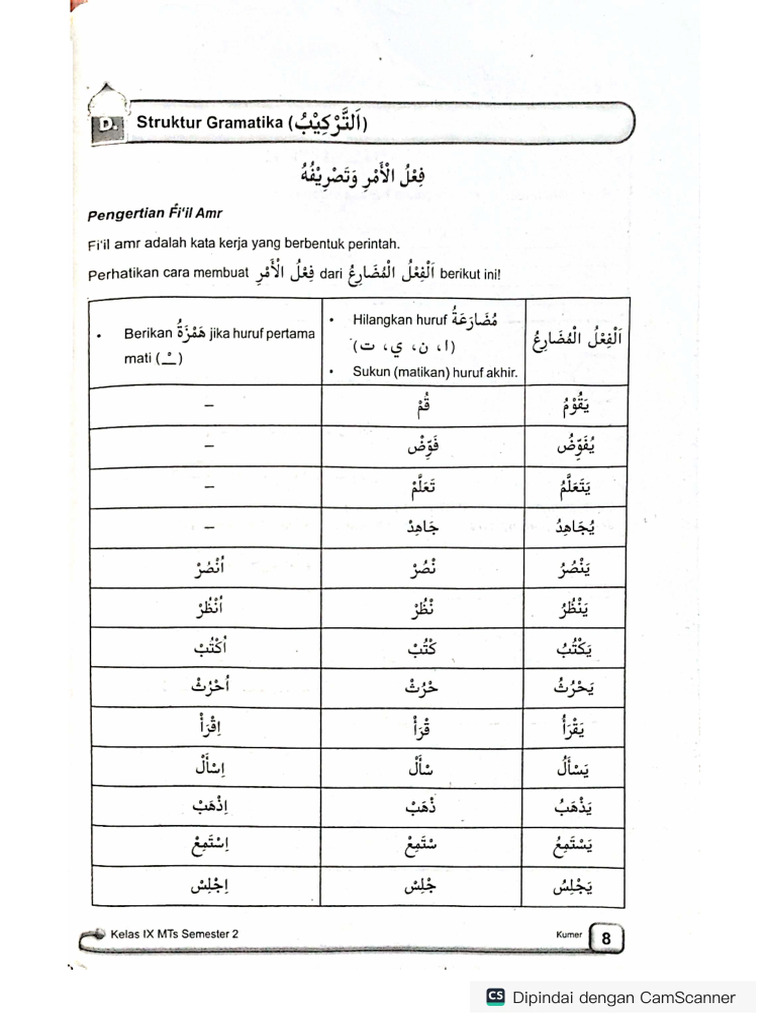 D. Struktur Gramatika (اَلتَّرْكِيْبُ)
فِعْلُ الْأَمْرِ وَتَصْرِيْفُهُ
Pengertian Fi'il Amr
Fi'il amr adalah kata kerja yang berbentuk perintah.
Perhatikan cara membuat فِعْلُ الْأَمْرِ dari اَلْفِعْلُ الْمُضَارِعُ berikut ini!
• Berikan هَمْزَةُ jika huruf pertama
mati (ـْ)
• Hilangkan huruf مُضَارَعَةُ
(ا، ن، ي، ت)
• Sukun (matikan) huruf akhir.
اَلْفِعْلُ الْمُضَارِعُ
– قُمْ يَقُوْمُ
– فَوِّضْ يُفَوِّضُ
– تَعَلَّمْ يَتَعَلَّمُ
– جَاهِدْ يُجَاهِدُ
اُنْصُرْ نْصُرْ يَنْصُرُ
اُنْظُرْ نْظُرْ يَنْظُرُ
اُكْتُبْ كْتُبْ يَكْتُبُ
اُحْرُثْ حْرُثْ يَحْرُثُ
اِقْرَأْ قْرَأْ يَقْرَأُ
اِسْأَلْ سْأَلْ يَسْأَلُ
اِذْهَبْ ذْهَبْ يَذْهَبُ
اِسْتَمِعْ سْتَمِعْ يَسْتَمِعُ
اِجْلِسْ جْلِسْ يَجْلِسُ
Kelas IX MTs Semester 2 Kumer 8
CS Dipindai dengan CamScanner